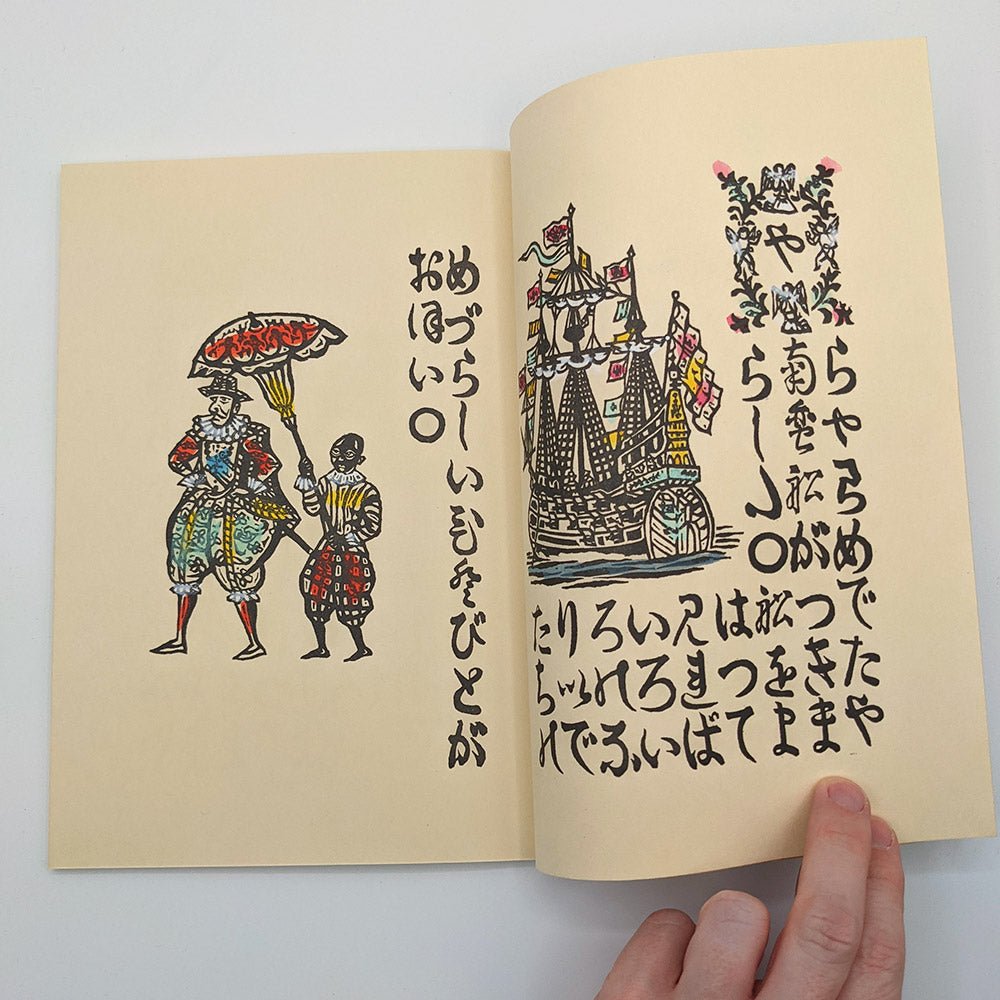 や
らやらめでたや
南蛮船がつきま
らし〇船をま
はつて
見れば
いろい
ろのふ
りいで
たちの
めづらしいびとが
おほい〇